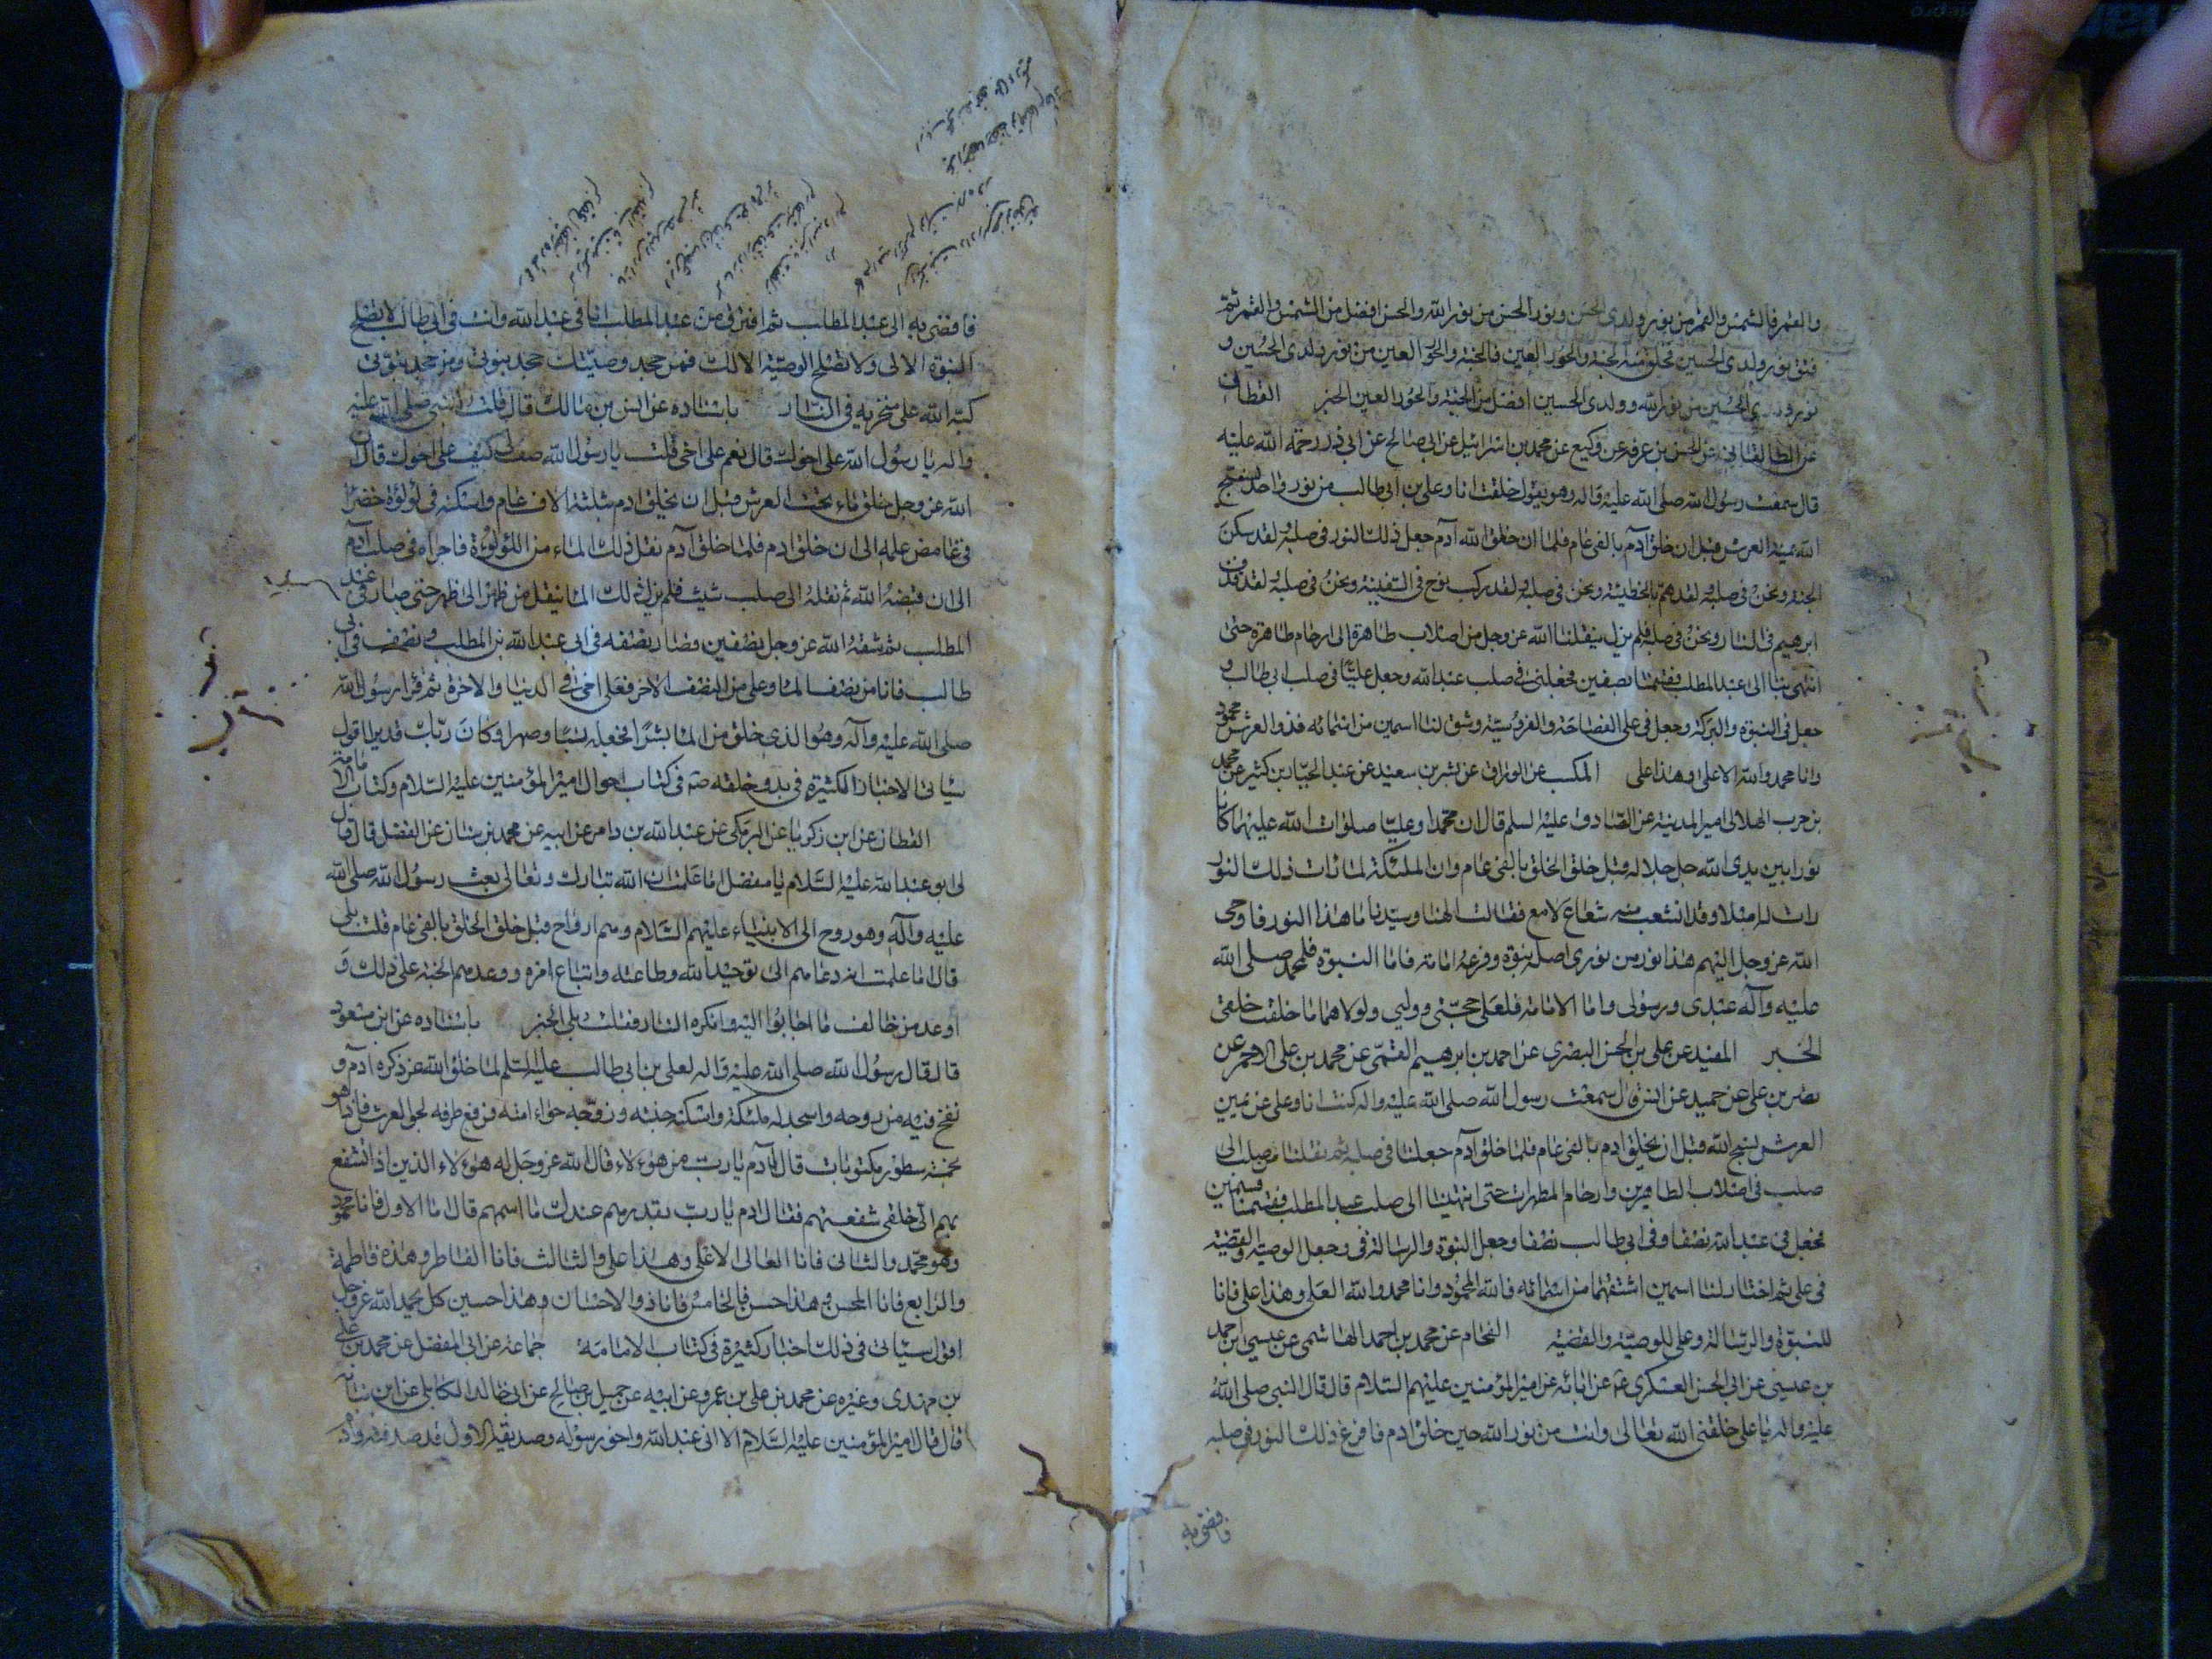 والقمر فالشمس والقمر من نور ولدى الحسن ونور الحسن من نور الله والحسن افضل من الشمس والقمر ثم
فتق نور ولدى الحسين فخلق منه الجنة والحور العين فالجنة والحور العين من نور ولدى الحسين و
نور ولدى الحسين من نور الله وولدى الحسين افضل من الجنة والحور العين الخبر القطان
عن الطالقانى عن الحسن بن عرفه عن وكيع عن محمد بن اسرائيل عن ابى صالح عن ابى ذر رحمة الله عليه
قال سمعت رسول الله صلى الله عليه واله وهو يقول خلقت انا وعلى بن ابى طالب من نور واحد نسبح
الله يمنة العرش قبل ان خلق آدم بالفى عام فلما ان خلق الله آدم جعل ذلك النور فى صلبه ولقد سكن
الجنة ونحن فى صلبه ولقد هم بالخطيئة ونحن فى صلبه ولقد ركب نوح فى السفينة ونحن فى صلبه ولقد قذف
ابرهيم فى النار ونحن فى صلبه فلم يزل ينقلنا الله عز وجل من اصلاب طاهرة الى ارحام طاهرة حتى
انتهى بنا الى عبد المطلب فقسمنا نصفين فجعلنى فى صلب عبد الله وجعل عليا فى صلب ابى طالب و
جعل فى النبوة والبركة وجعل فى على الفصاحة والفروسية وشق لنا اسمين من اسمائه فذو العرش محمود
وانا محمد والله الاعلى وهذا على المكتب عن الوراق عن بشر بن سعيد عن عبد الجبار بن كثير عن محمد
بن حرب الهلالى امير المدينة عن الصادق عليه السلم قال ان محمدا وعليا صلوات الله عليهما كانا
نورا بين يدى الله جل جلاله قبل خلق الخلق بالفى عام وان الملئكة لما رات ذلك النور
رات له اصلا وقد انشعب منه شعاع لامع فقالت الهنا وسيدنا ما هذا النور فاوحى
الله عز وجل اليهم هذا نور من نورى اصله نبوة وفرعه امامة فاما النبوة فلمحمد صلى الله
عليه وآله عبدى ورسولى واما الامامة فلعلى حجتى ووليى ولولاهما ما خلقت خلقى
الخبر المفيد عن على بن الحسن البصرى عن احمد بن ابرهيم القمى عن محمد بن على الاحمر عن
نصر بن على عن حميد عن انس قال سمعت رسول الله صلى الله عليه واله كنت انا وعلى عن يمين
العرش نسبح الله قبل ان يخلق ادم بالفى عام فلما خلق آدم جعلنا فى صلبه ثم نقلنا من صلب الى
صلب فى اصلاب الطاهرين وارحام المطهرات حتى انتهينا الى صلب عبد المطلب فقسمنا قسمين
فجعل فى عبد الله نصفا وفى ابى طالب نصفا وجعل النبوة والرسالة فى وجعل الوصية والقضية
فى على ثم اختار لنا اسمين اشتقهما من اسمائه فالله المحمود وانا محمد والله العلى وهذا على فانا
للنبوة والرسالة وعلى للوصية والقضية الفحام عن محمد بن احمد الهاشمى عن عيسى بن احمد
بن عيسى عن ابى الحسن العسكرى عن آبائه عن امير المؤمنين عليهم السلام قال قال النبى صلى الله
عليه واله يا على خلقنى الله تعالى وانت من نور الله حين خلق ادم فافرغ ذلك النور فى صلبه
فافضى به
فافضى به الى عبد المطلب ثم افترق من عبد المطلب انا فى عبد الله وانت فى ابى طالب لا تصلح
النبوة الا لى ولا تصلح الوصية الا لك فمن جحد وصيتك جحد نبوتى ومن جحد نبوتى
كبه الله على منخريه فى النار باسناده عن انس بن مالك قال قلت للنبى صلى الله عليه
واله يا رسول الله على اخوك قال نعم على اخى قلت يا رسول الله صف لى كيف على اخوك قال ان
الله عز وجل خلق ماء تحت العرش قبل ان يخلق ادم بثلثة الاف عام واسكنه فى لؤلؤة خضراء
فى غامض علمه الى ان خلق ادم فلما خلق آدم نقل ذلك الماء من اللؤلؤة فاجراه فى صلب آدم
الى ان قبضه الله ثم نقله الى صلب شيث فلم يزل ذلك الماء ينقل من ظهر الى ظهر حتى صار فى عبد
المطلب ثم شقه الله عز وجل نصفين فصار نصفه فى ابى عبد الله بن المطلب ونصف فى ابى
طالب فانا من نصف الماء وعلى من النصف الاخر فعلى اخى فى الدنيا والاخرة ثم قرا رسول الله
صلى الله عليه وآله وهو الذى خلق من الماء بشرا فجعله نسبا وصهرا وكان ربك قديرا اقول
سياتى الاخبار الكثيرة فى بدو خلقه صم فى كتاب احوال امير المؤمنين عليه السلام وكتاب الامامة
القطان عن ابن زكريا عن البرمكى عن عبد الله بن داهر عن ابيه عن محمد بن سنان عن المفضل قال قال
لى ابو عبد الله عليه السلام يا مفضل اما علمت ان الله تبارك وتعالى بعث رسول الله صلى الله
عليه وآله وهو روح الى الانبياء عليهم السلام وهم ارواح قبل خلق الخلق بالفى عام قلت بلى
قال اما علمت انه دعاهم الى توحيد الله وطاعته واتباع امره ووعدهم الجنة على ذلك و
اوعد من خالف ما اجابوا اليه وانكره النار فقلت بلى الخبر باسناده عن ابن مسعود
قال قال رسول الله صلى الله عليه واله لعلى بن ابى طالب عليه السلم لما خلق الله عز ذكره آدم و
نفخ فيه من روحه واسجد له ملئكته واسكنه جنته وزوجه حواء امته فرفع طرفه نحو العرش فاذا هو
بخمسة سطور مكتوبات قال آدم يا رب من هؤلاء قال الله عز وجل له هؤلاء الذين اذا تشفع
بهم الى خلقى شفعتهم فقال ادم يا رب بقدرهم عندك ما اسمهم قال اما الاول فانا محمود
وهو محمد والثانى فانا العالى الاعلى وهذا على والثالث فانا الفاطر وهذه فاطمة
والرابع فانا المحسن وهذا حسن والخامس فانا ذو الاحسان وهذا حسين كل يحمد الله عز وجل
اقول سياتى فى ذلك اخبار كثيرة فى كتاب الامامة جماعة عن ابى المفضل عن محمد بن على
بن مهدى وغيره عن محمد بن على بن عمرو عن ابيه عن جميل بن صالح عن ابى خالد الكابلى عن ابن نباته
قال قال امير المؤمنين عليه السلام الا انى عبد الله واخو رسوله وصديقه الاول قد صدقته وآدم